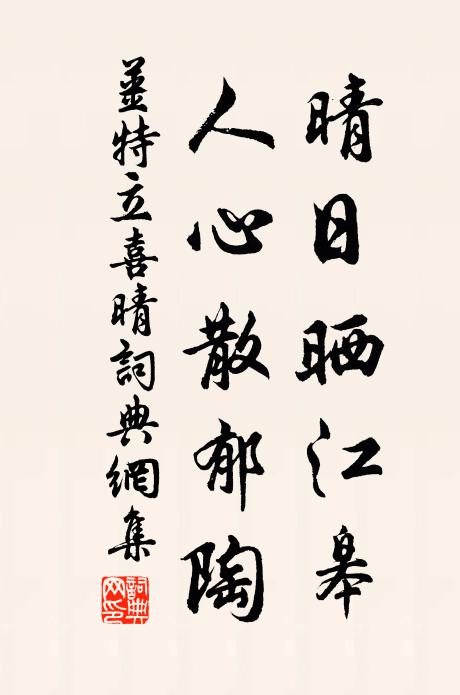 晴日晒江皋
人心散郁陶
薑特立喜晴詞典網集
詞典网印